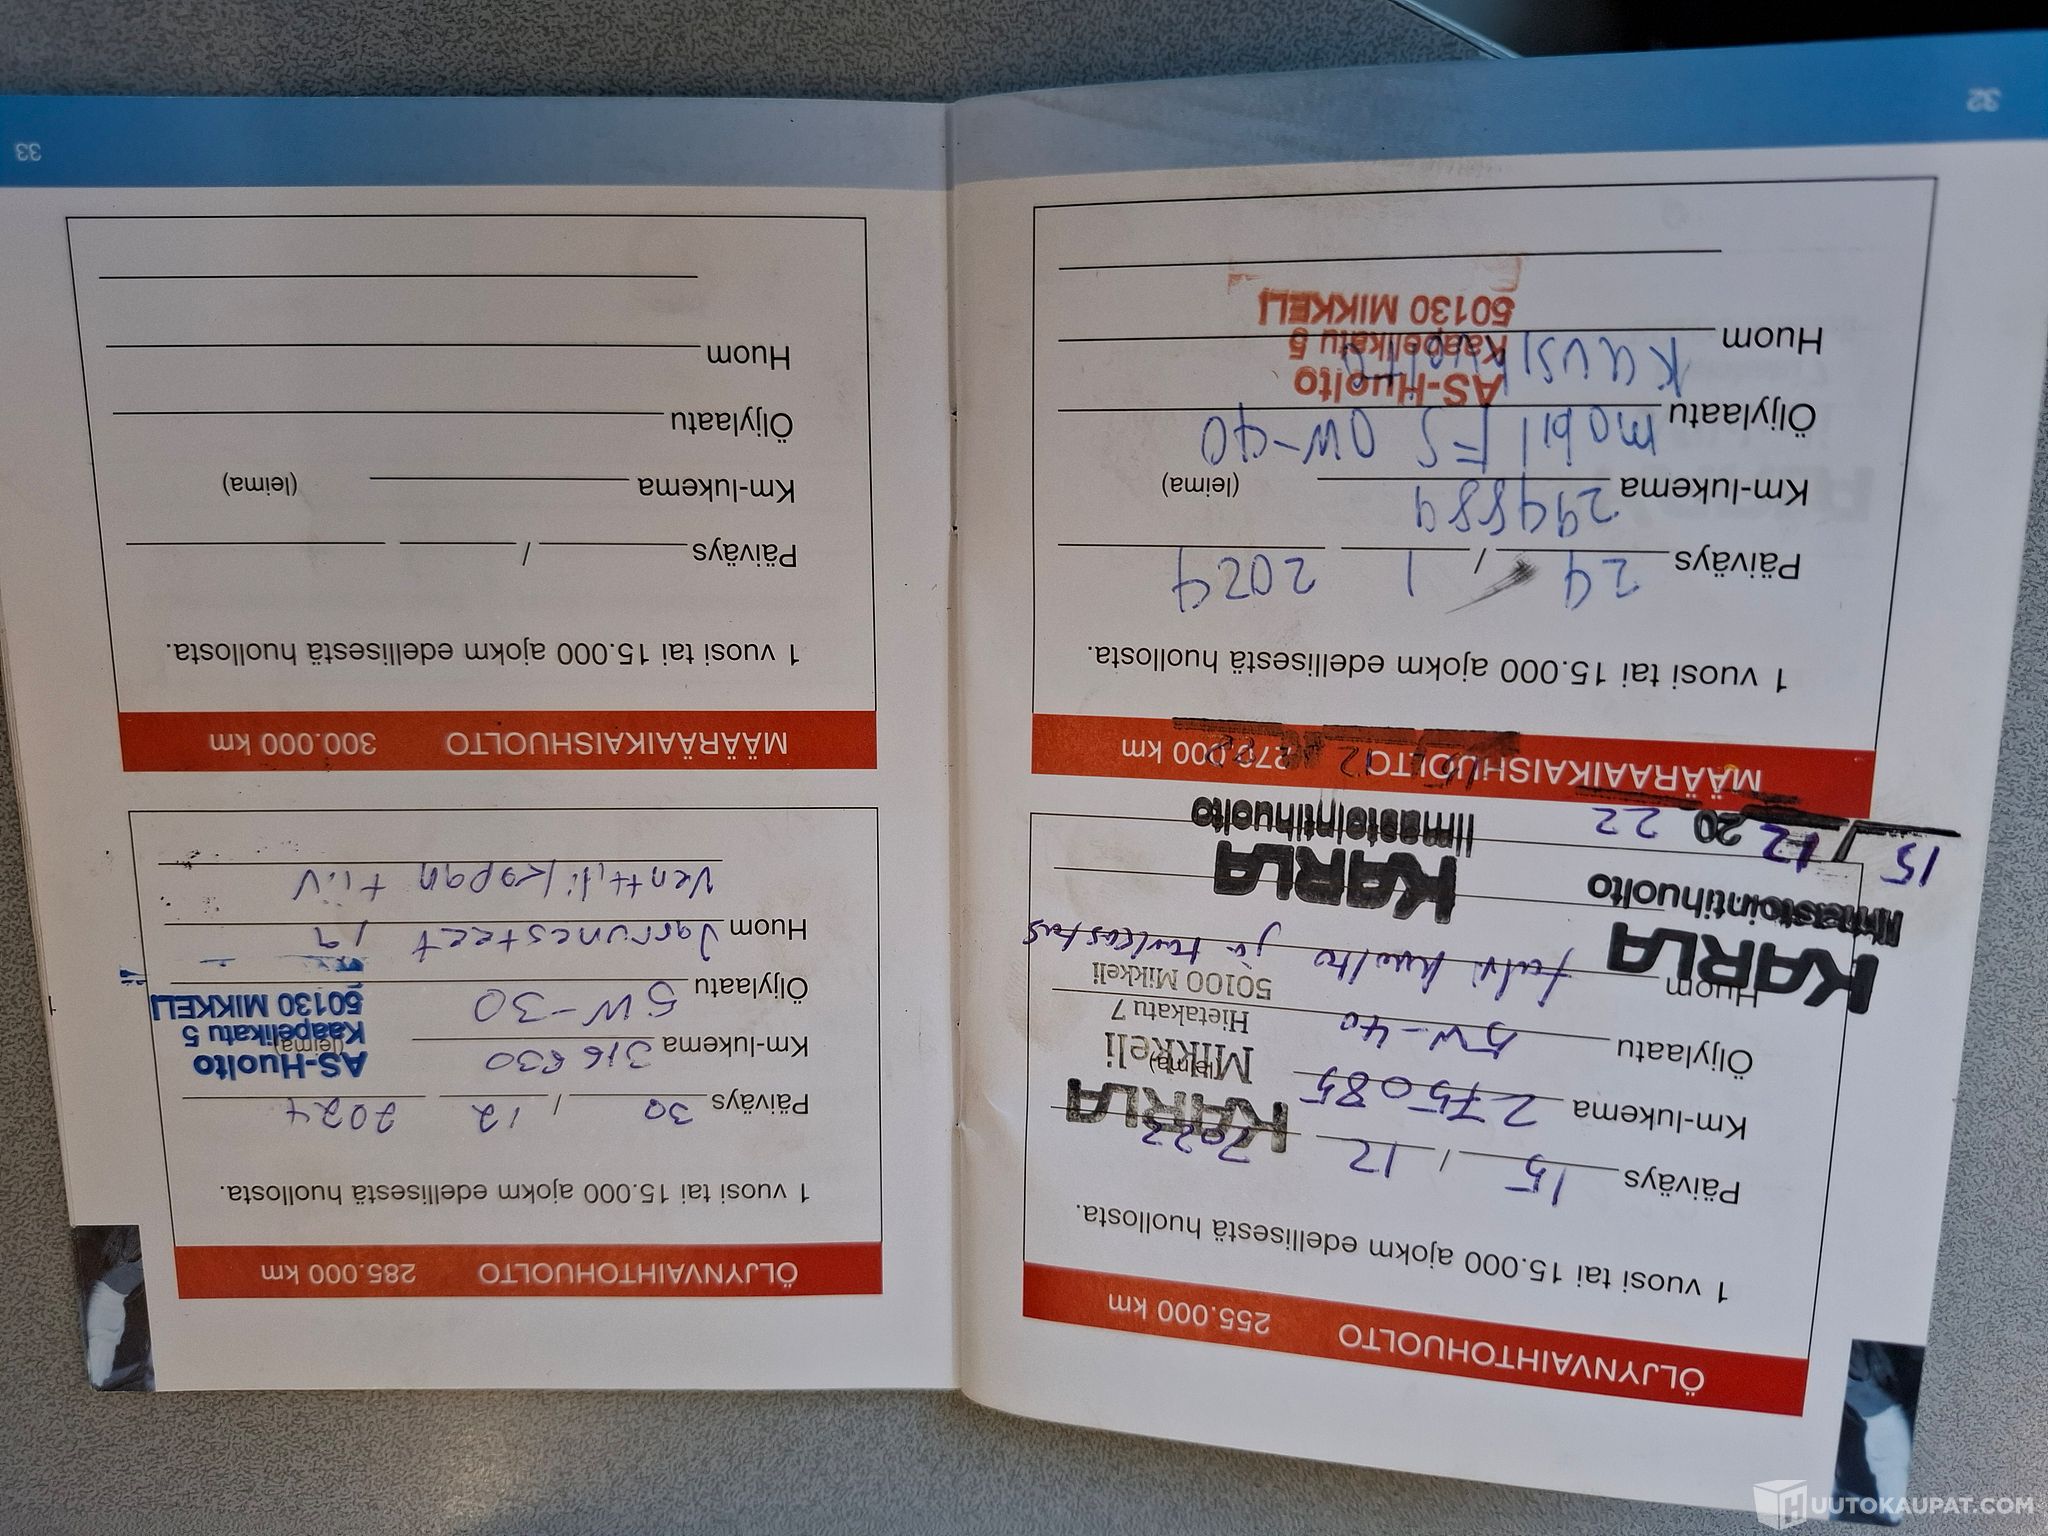 ÖLJYNVAIHTOHUOLTO 255.000 km
1 vuosi tai 15.000 ajokm edellisestä huollosta.
Päiväys 15 / 12 2022
KARLA
Km-lukema 275085
Mikkeli
(leima)
Öljylaatu 5W-40
Hietakatu 7
50100 Mikkeli
Huom talvi huolto ja tarkastus
KARLA
Ilmastointihuolto
KARLA
Ilmastointihuolto
15 / 12 20 22
MÄÄRÄAIKAISHUOLTO 270.000 km
1 vuosi tai 15.000 ajokm edellisestä huollosta.
Päiväys 24 / 1 2024
Km-lukema 294889 (leima)
Öljylaatu mobil FS 0W-40
AS-Huolto
Kaapelikatu 5
50130 MIKKELI
Huom Kausihuolto
32
ÖLJYNVAIHTOHUOLTO 285.000 km
1 vuosi tai 15.000 ajokm edellisestä huollosta.
Päiväys 30 / 12 2024
Km-lukema 316630 (leima)
AS-Huolto
Kaapelikatu 5
50130 MIKKELI
Öljylaatu 5W-30
Huom Jarrunesteet ja
Venttiilikopan tiiv
MÄÄRÄAIKAISHUOLTO 300.000 km
1 vuosi tai 15.000 ajokm edellisestä huollosta.
Päiväys /
Km-lukema (leima)
Öljylaatu
Huom
33
HUUTOKAUPAT.COM